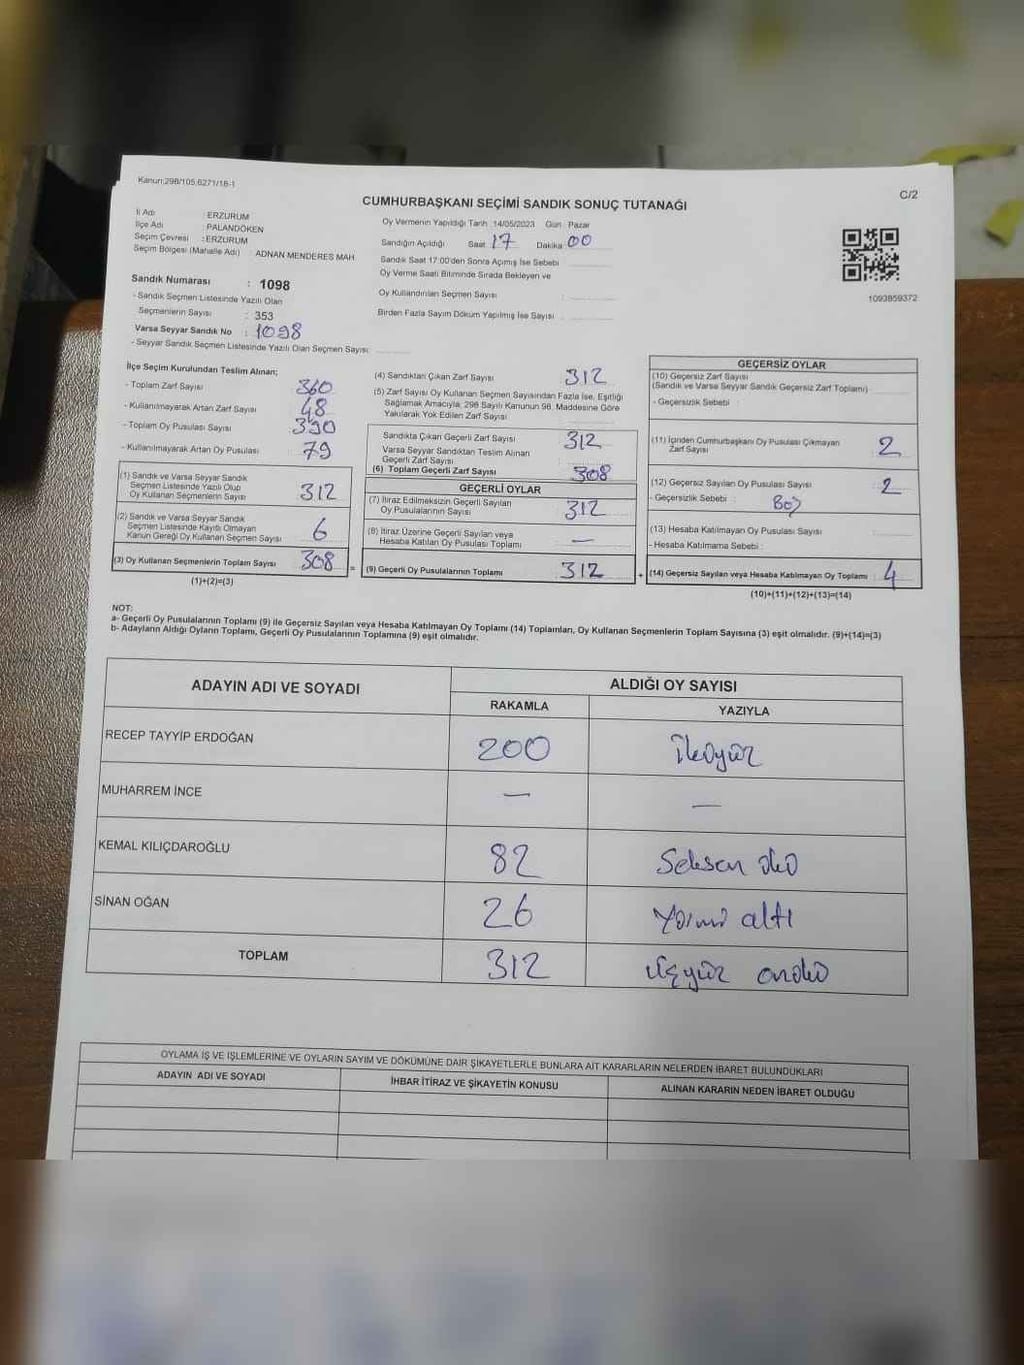 Kanun:298/105,6271/18-1
C/2
CUMHURBAŞKANI SEÇİMİ SANDIK SONUÇ TUTANAĞI
İl Adı : ERZURUM
İlçe Adı : PALANDÖKEN
Seçim Çevresi : ERZURUM
Seçim Bölgesi (Mahalle Adı) : ADNAN MENDERES MAH
Sandık Numarası : 1098
- Sandık Seçmen Listesinde Yazılı Olan
Seçmenlerin Sayısı : 353
Varsa Seyyar Sandık No : 1098
- Seyyar Sandık Seçmen Listesinde Yazılı Olan Seçmen Sayısı:
Oy Vermenin Yapıldığı Tarih :14/05/2023 Gün : Pazar
Sandığın Açıldığı Saat 17 Dakika 00
Sandık Saat 17.00'den Sonra Açımış İse Sebebi
Oy Verme Saati Bitiminde Sırada Bekleyen ve
Oy Kullandırılan Seçmen Sayısı :
Birden Fazla Sayım Döküm Yapılmış İse Sayısı :
1093859372
İlçe Seçim Kurulundan Teslim Alınan;
- Toplam Zarf Sayısı 360
- Kullanılmayarak Artan Zarf Sayısı 48
- Toplam Oy Pusulası Sayısı 390
- Kullanılmayarak Artan Oy Pusulası 79
(1) Sandık ve Varsa Seyyar Sandık
Seçmen Listesinde Yazılı Olup
Oy Kullanan Seçmenlerin Sayısı 312
(2) Sandık ve Varsa Seyyar Sandık
Seçmen Listesinde Kayıtlı Olmayan
Kanun Gereği Oy Kullanan Seçmen Sayısı 6
(3) Oy Kullanan Seçmenlerin Toplam Sayısı 308
(1)+(2)=(3)
=
(4) Sandıktan Çıkan Zarf Sayısı 312
(5) Zarf Sayısı Oy Kullanan Seçmen Sayısından Fazla İse, Eşitliği
Sağlamak Amacıyla, 298 Sayılı Kanunun 98. Maddesine Göre
Yakılarak Yok Edilen Zarf Sayısı
Sandıkta Çıkan Geçerli Zarf Sayısı 312
Varsa Seyyar Sandıktan Teslim Alınan
Geçerli Zarf Sayısı
(6) Toplam Geçerli Zarf Sayısı 308
GEÇERLİ OYLAR
(7) İtiraz Edilmeksizin Geçerli Sayılan
Oy Pusulalarının Sayısı 312
(8) İtiraz Üzerine Geçerli Sayılan veya
Hesaba Katılan Oy Pusulası Toplamı —
(9) Geçerli Oy Pusulalarının Toplamı 312
+
GEÇERSİZ OYLAR
(10) Geçersiz Zarf Sayısı
(Sandık ve Varsa Seyyar Sandık Geçersiz Zarf Toplamı)
- Geçersizlik Sebebi :
(11) İçinden Cumhurbaşkanı Oy Pusulası Çıkmayan
Zarf Sayısı 2
(12) Geçersiz Sayılan Oy Pusulası Sayısı 2
- Geçersizlik Sebebi : Boş
(13) Hesaba Katılmayan Oy Pusulası Sayısı
- Hesaba Katılmama Sebebi :
(14) Geçersiz Sayılan veya Hesaba Katılmayan Oy Toplamı 4
(10)+(11)+(12)+(13)=(14)
NOT:
a- Geçerli Oy Pusulalarının Toplamı (9) ile Geçersiz Sayılan veya Hesaba Katılmayan Oy Toplamı (14) Toplamları, Oy Kullanan Seçmenlerin Toplam Sayısına (3) eşit olmalıdır. (9)+(14)=(3)
b- Adayların Aldığı Oyların Toplamı, Geçerli Oy Pusulalarının Toplamına (9) eşit olmalıdır.
ADAYIN ADI VE SOYADI ALDIĞI OY SAYISI
RAKAMLA YAZIYLA
RECEP TAYYİP ERDOĞAN 200 ikiyüz
MUHARREM İNCE — —
KEMAL KILIÇDAROĞLU 82 Seksen iki
SİNAN OĞAN 26 Yirmi altı
TOPLAM 312 üçyüz oniki
OYLAMA İŞ VE İŞLEMLERİNE VE OYLARIN SAYIM VE DÖKÜMÜNE DAİR ŞİKAYETLERLE BUNLARA AİT KARARLARIN NELERDEN İBARET BULUNDUKLARI
ADAYIN ADI VE SOYADI İHBAR İTİRAZ VE ŞİKAYETİN KONUSU ALINAN KARARIN NEDEN İBARET OLDUĞU